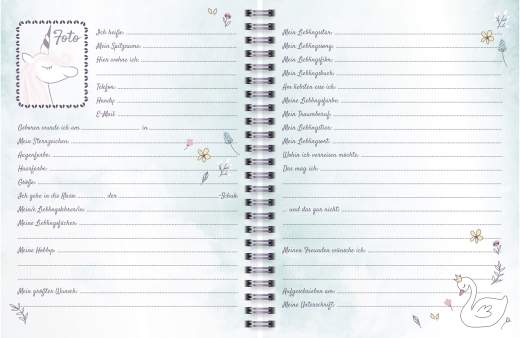 Foto
Ich heiße:
Mein Spitzname:
Hier wohne ich:
Telefon:
Handy:
E-Mail:
Geboren wurde ich am in
Mein Sternzeichen:
Augenfarbe:
Haarfarbe:
Größe:
Ich gehe in die Klasse der -Schule
Mein/e Lieblingslehrer/in:
Meine Lieblingsfächer:
Meine Hobbys:
Mein größter Wunsch:
Mein Lieblingsstar:
Mein Lieblingssong:
Mein Lieblingsfilm:
Mein Lieblingsbuch:
Am liebsten esse ich:
Meine Lieblingsfarbe:
Mein Traumberuf:
Mein Lieblingstier:
Mein Lieblingsort:
Wohin ich verreisen möchte:
Das mag ich:
... und das gar nicht:
Meinen Freunden wünsche ich:
Aufgeschrieben am:
Meine Unterschrift: